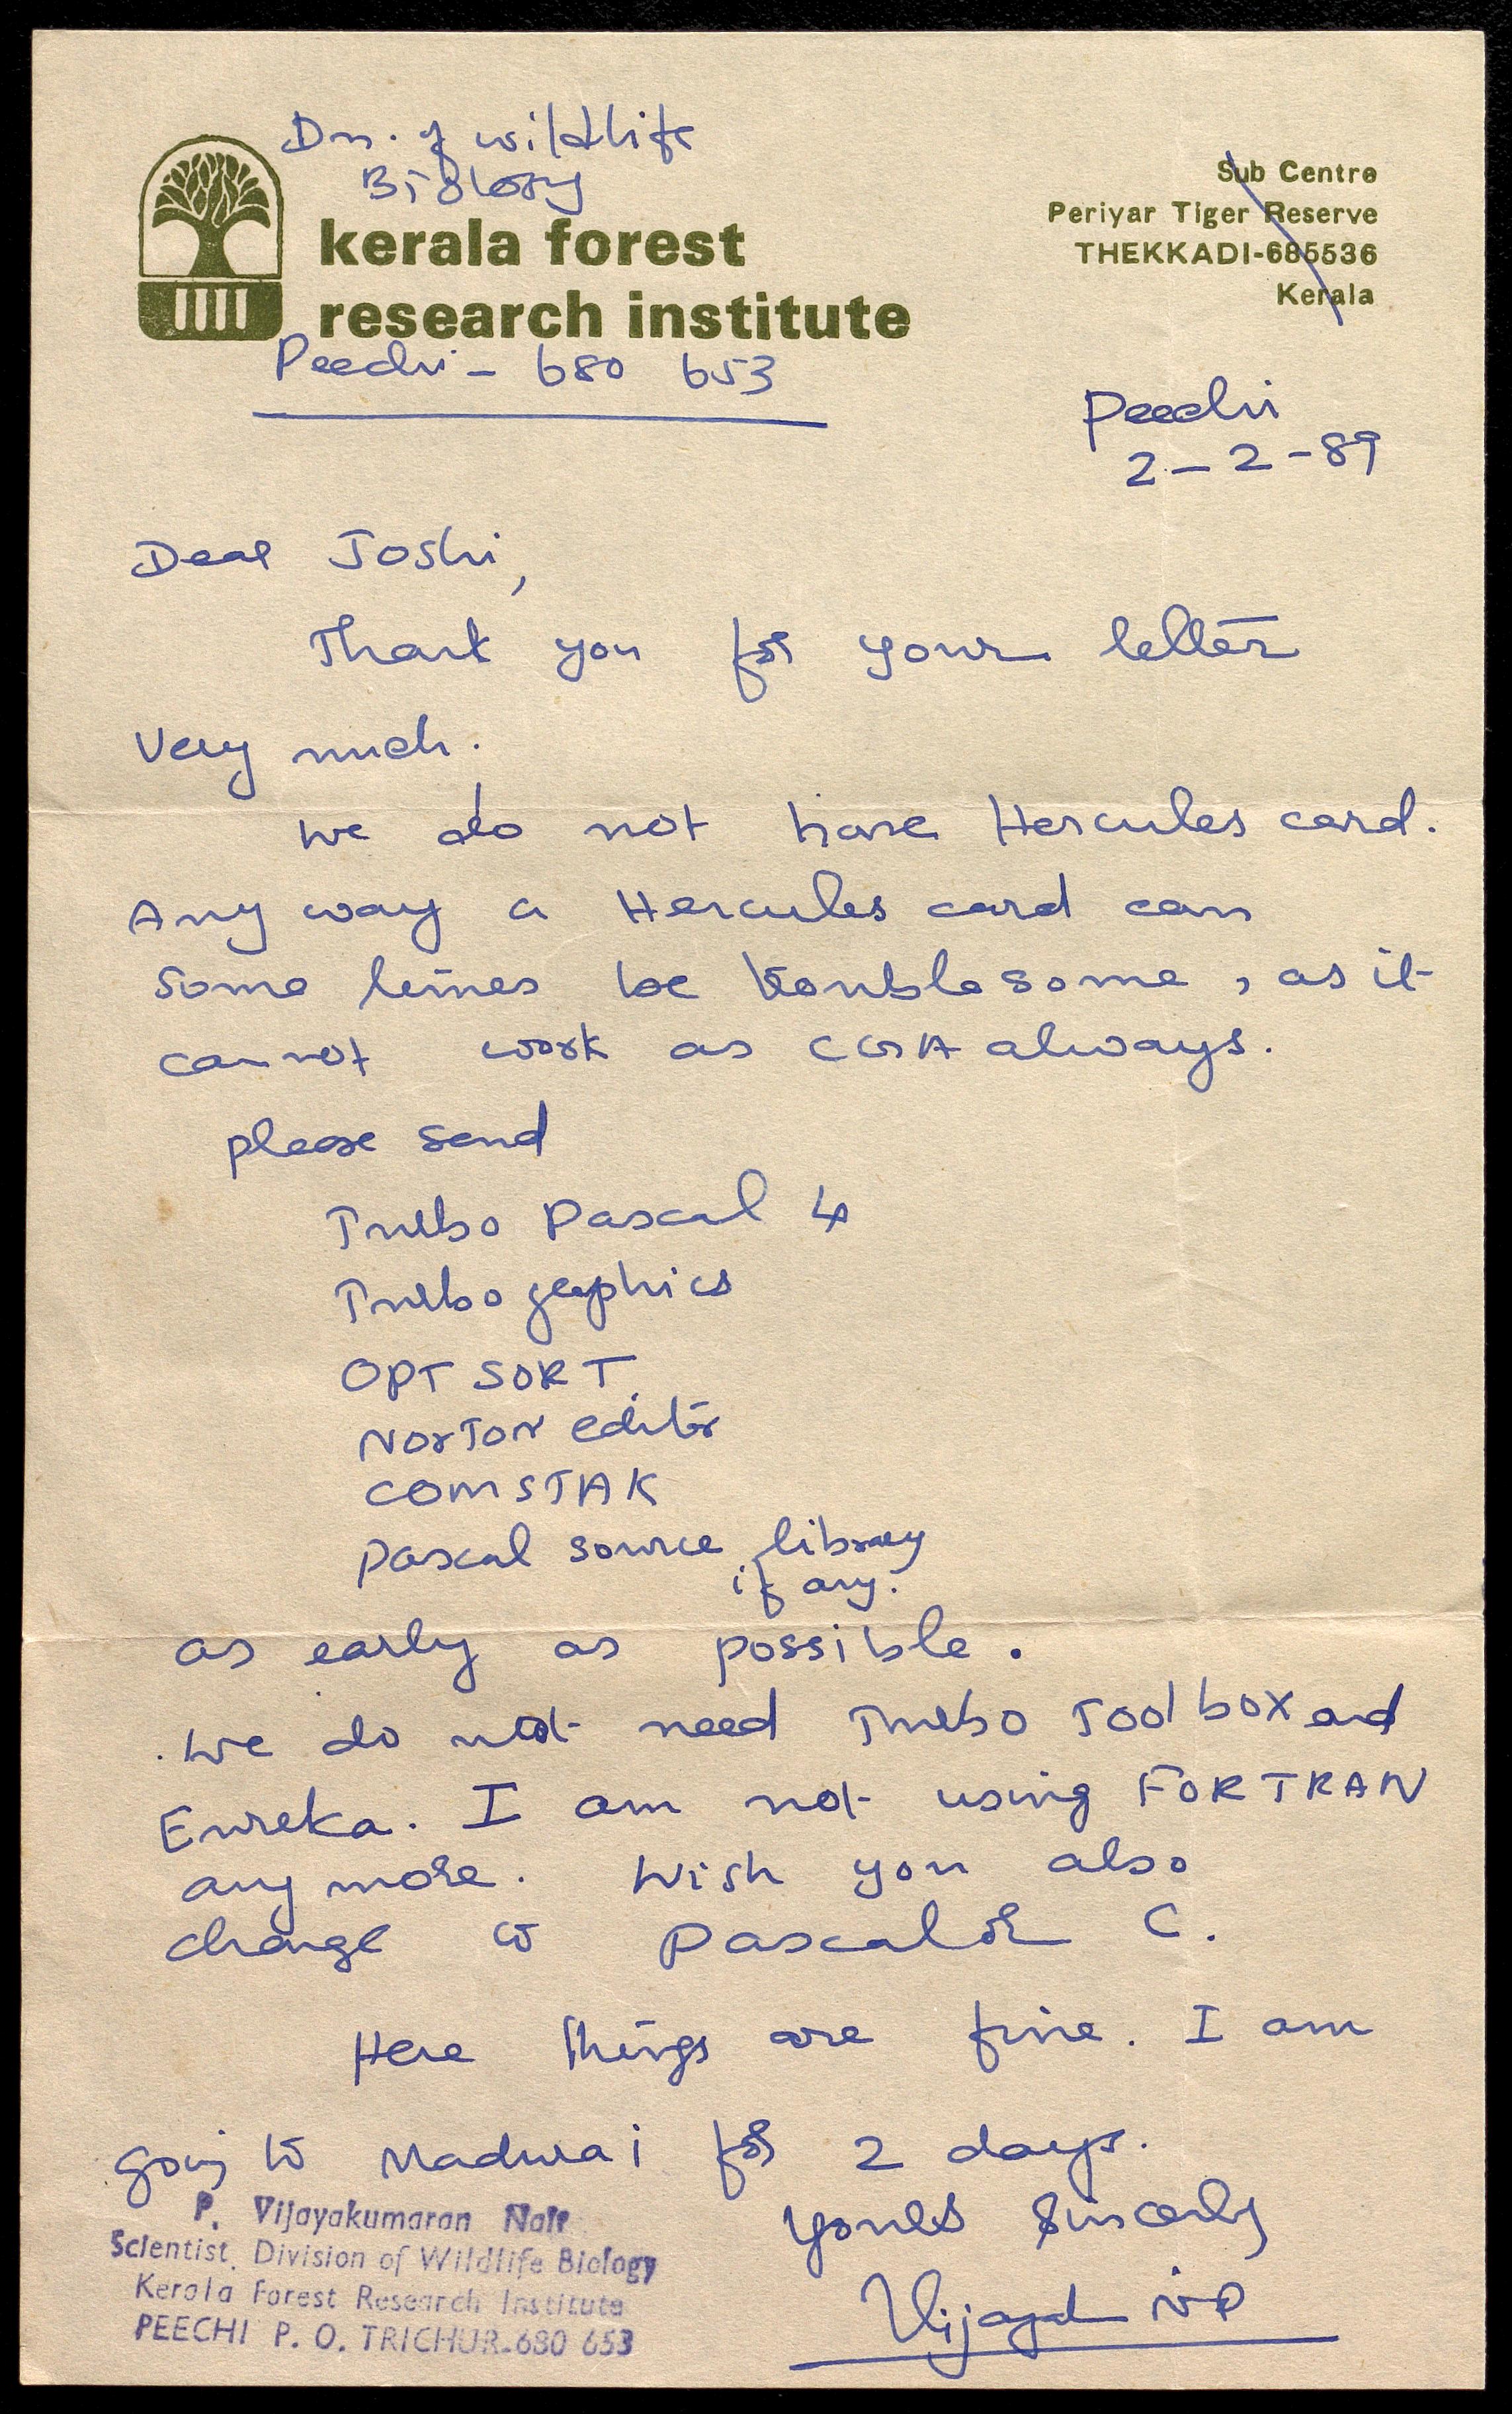 Dn. of wildlife
Biology
kerala forest
research institute
Peechi - 680 653
Sub Centre
Periyar Tiger Reserve
THEKKADI-685536
Kerala
Peechi
2-2-89
Dear Joshi,
Thank you for your letter
very much.
We do not have Hercules card.
Any way a Hercules card can
some times be troublesome, as it
cannot work as CGA always.
please send
Turbo Pascal 4
Turbo graphics
OPT SORT
NORTON editor
COMSTAK
pascal source library
if any.
as early as possible.
We do not need Turbo Toolbox and
Eureka. I am not using FORTRAN
any more. Wish you also
change to Pascal or C.
Here things are fine. I am
going to Madurai for 2 days.
Yours Sincerly
P. Vijayakumaran Nair
Scientist, Division of Wildlife Biology
Kerala Forest Research Institute
PEECHI P. O. TRICHUR-680 653